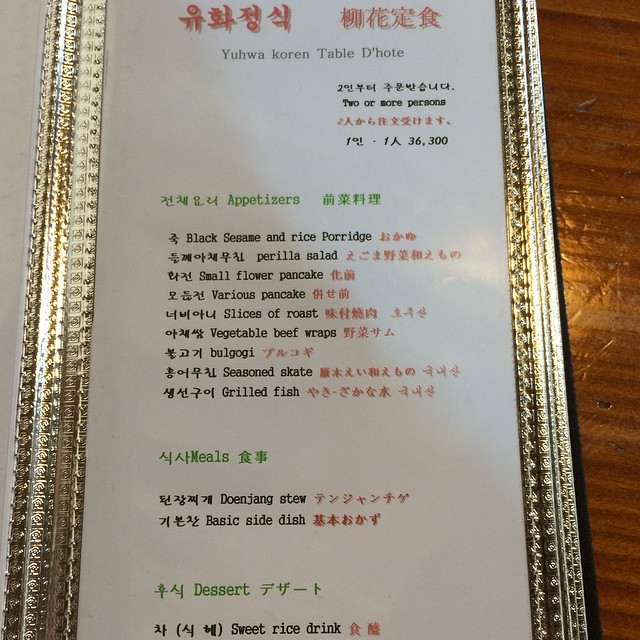 유화정식 柳花定食
Yuhwa koren Table D'hote
2인부터 주문받습니다.
Two or more persons
2人から注文受けます。
1인 · 1人 36,300
전채요리 Appetizers 前菜料理
죽 Black Sesame and rice Porridge おかゆ
들깨야채무침 perilla salad えごま野菜和えもの
화전 Small flower pancake 化前
모듬전 Various pancake 併せ前
너비아니 Slices of roast 味付焼肉 호주산
야채쌈 Vegetable beef wraps 野菜サム
불고기 bulgogi プルコギ
홍어무침 Seasoned skate 雁木えい和えもの 국내산
생선구이 Grilled fish やき-ざかな水 국내산
식사Meals 食事
된장찌개 Doenjang stew テンジャンチゲ
기본찬 Basic side dish 基本おかず
후식 Dessert デザート
차 (식 혜) Sweet rice drink 食 醯